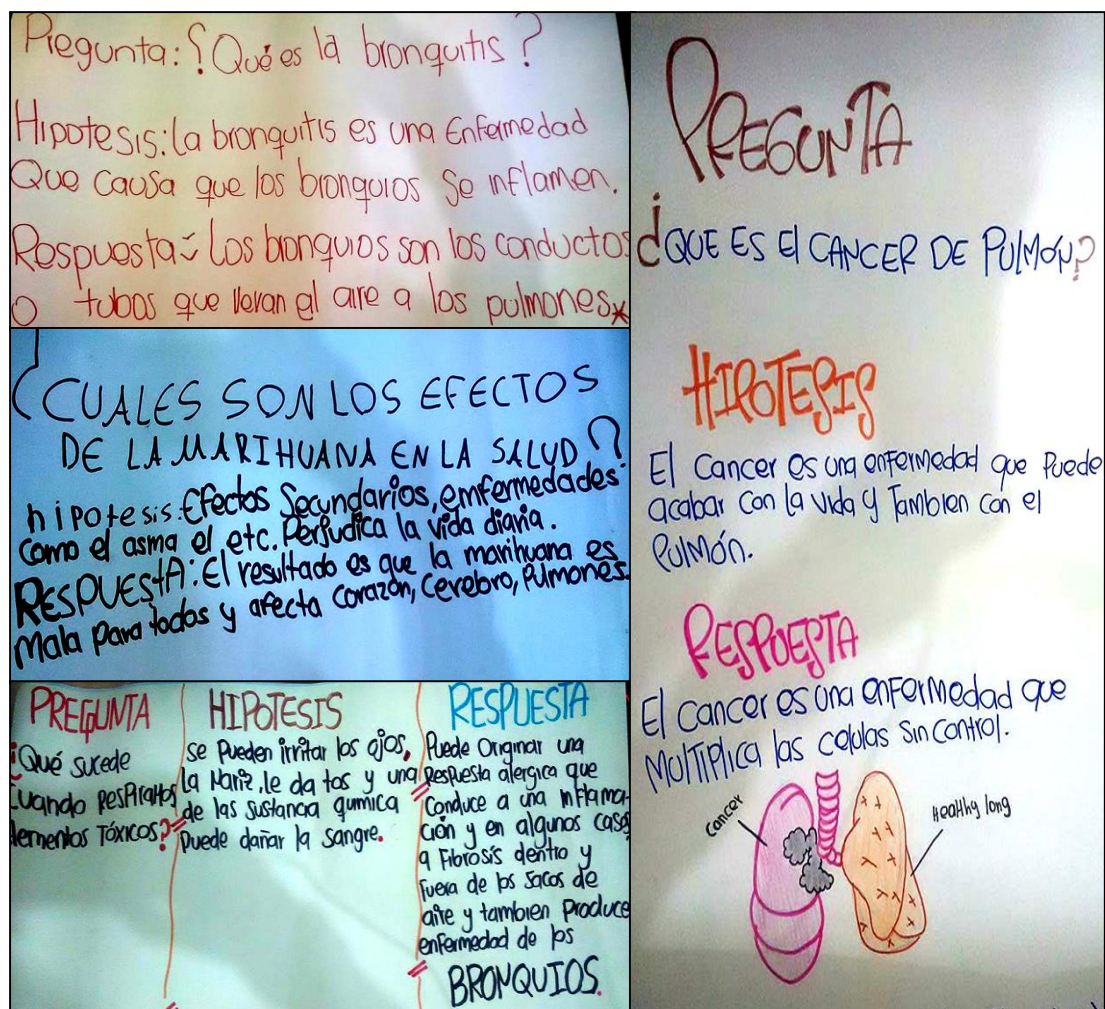 Pregunta: ¿Qué es la bronquitis?
Hipotesis: la bronquitis es una Enfermedad
Que causa que los bronquios se inflamen.
Respuesta: Los bronquios son los conductos
O tubos que llevan el aire a los pulmones*
¿CUALES SON LOS EFECTOS
DE LA MARIHUANA EN LA SALUD?
hipotesis: Efectos Secundarios, emfermedades
como el asma el etc. Perjudica la vida diaria.
RESPUESTA: El resultado es que la marihuana es
Mala Para todos y afecta corazón, cerebro, Pulmones.
PREGUNTA
¿Qué sucede
Cuando RESPiRaMos
elementos Tóxicos?
HIPOTESIS
se Pueden irritar los ojos,
la Nariz, le da tos y una
de las sustancia quimica
Puede dañar la sangre.
RESPUESTA
Puede Originar una
Respuesta alergica que
Conduce a una inflama-
ción y en algunos casos
a Fibrosis dentro y
Fuera de los Sacos de
aire y tambien Produce
enfermedad de los
BRONQUIOS.
PREGUNTA
¿QUE ES El CANCER DE PUlMóN?
HIPOTESIS
El Cancer es una enfermedad que Puede
acabar Con la vida y Tambien con el
PUlMón.
RESPUESTA
El cancer es una enfermedad que
MulTiPlica las celulas Sin control.
Cancer
Healthy long